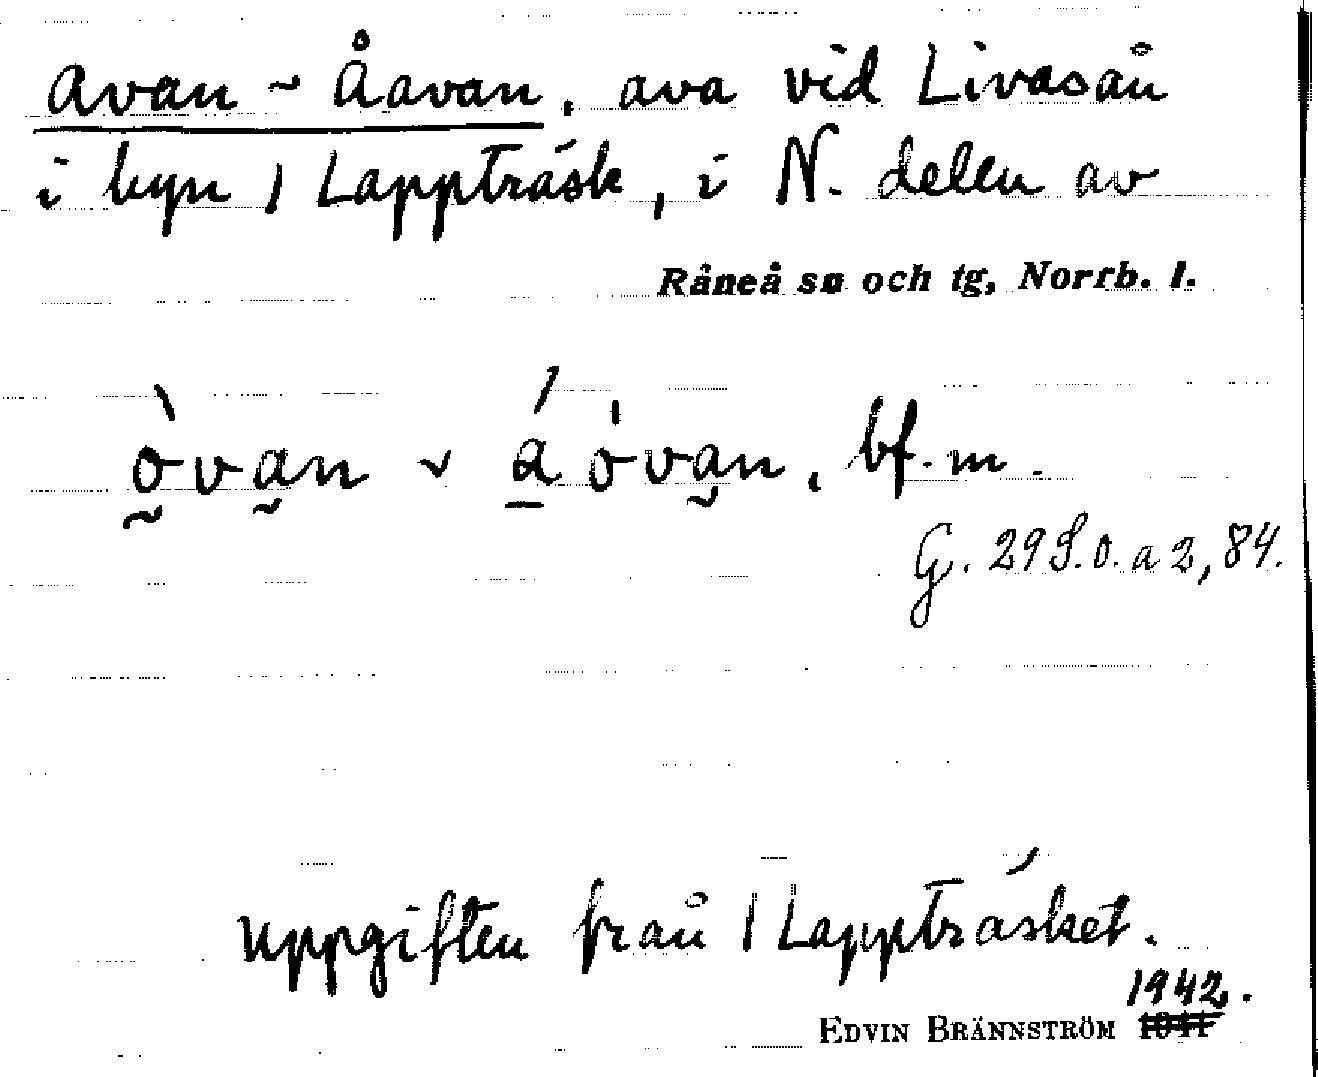 Avan ~ Åavan, ava vid Livasån
i byn / Lappträsk, i N. delen av
Råneå sn och tg, Norrb. l.
òvan ~ á óvan, bf. m.
G. 29 S. o. a 2, 84.
Uppgiften från / Lappträsket.
1942.
EDVIN BRÄNNSTRÖM 1941